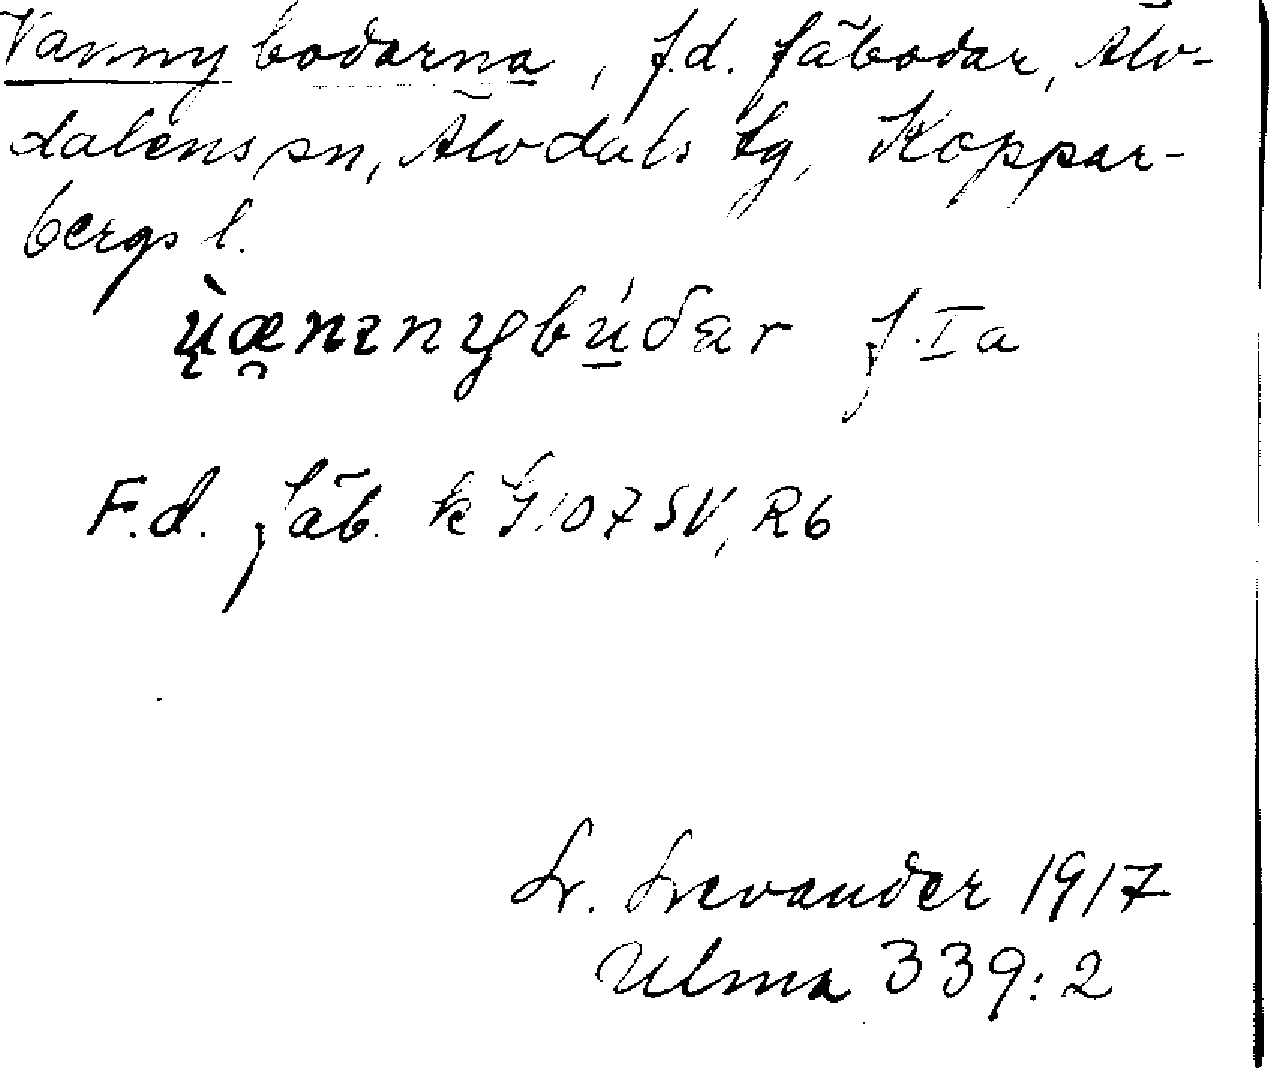 Vanmybodarna, f.d. fäbodar, Älv-
dalens sn, Älvdals tg, Koppar-
bergs l.
f. Ia
F.d. fäb. k G 107 SV, R6
L. Levander 1917
Ulma 339:2